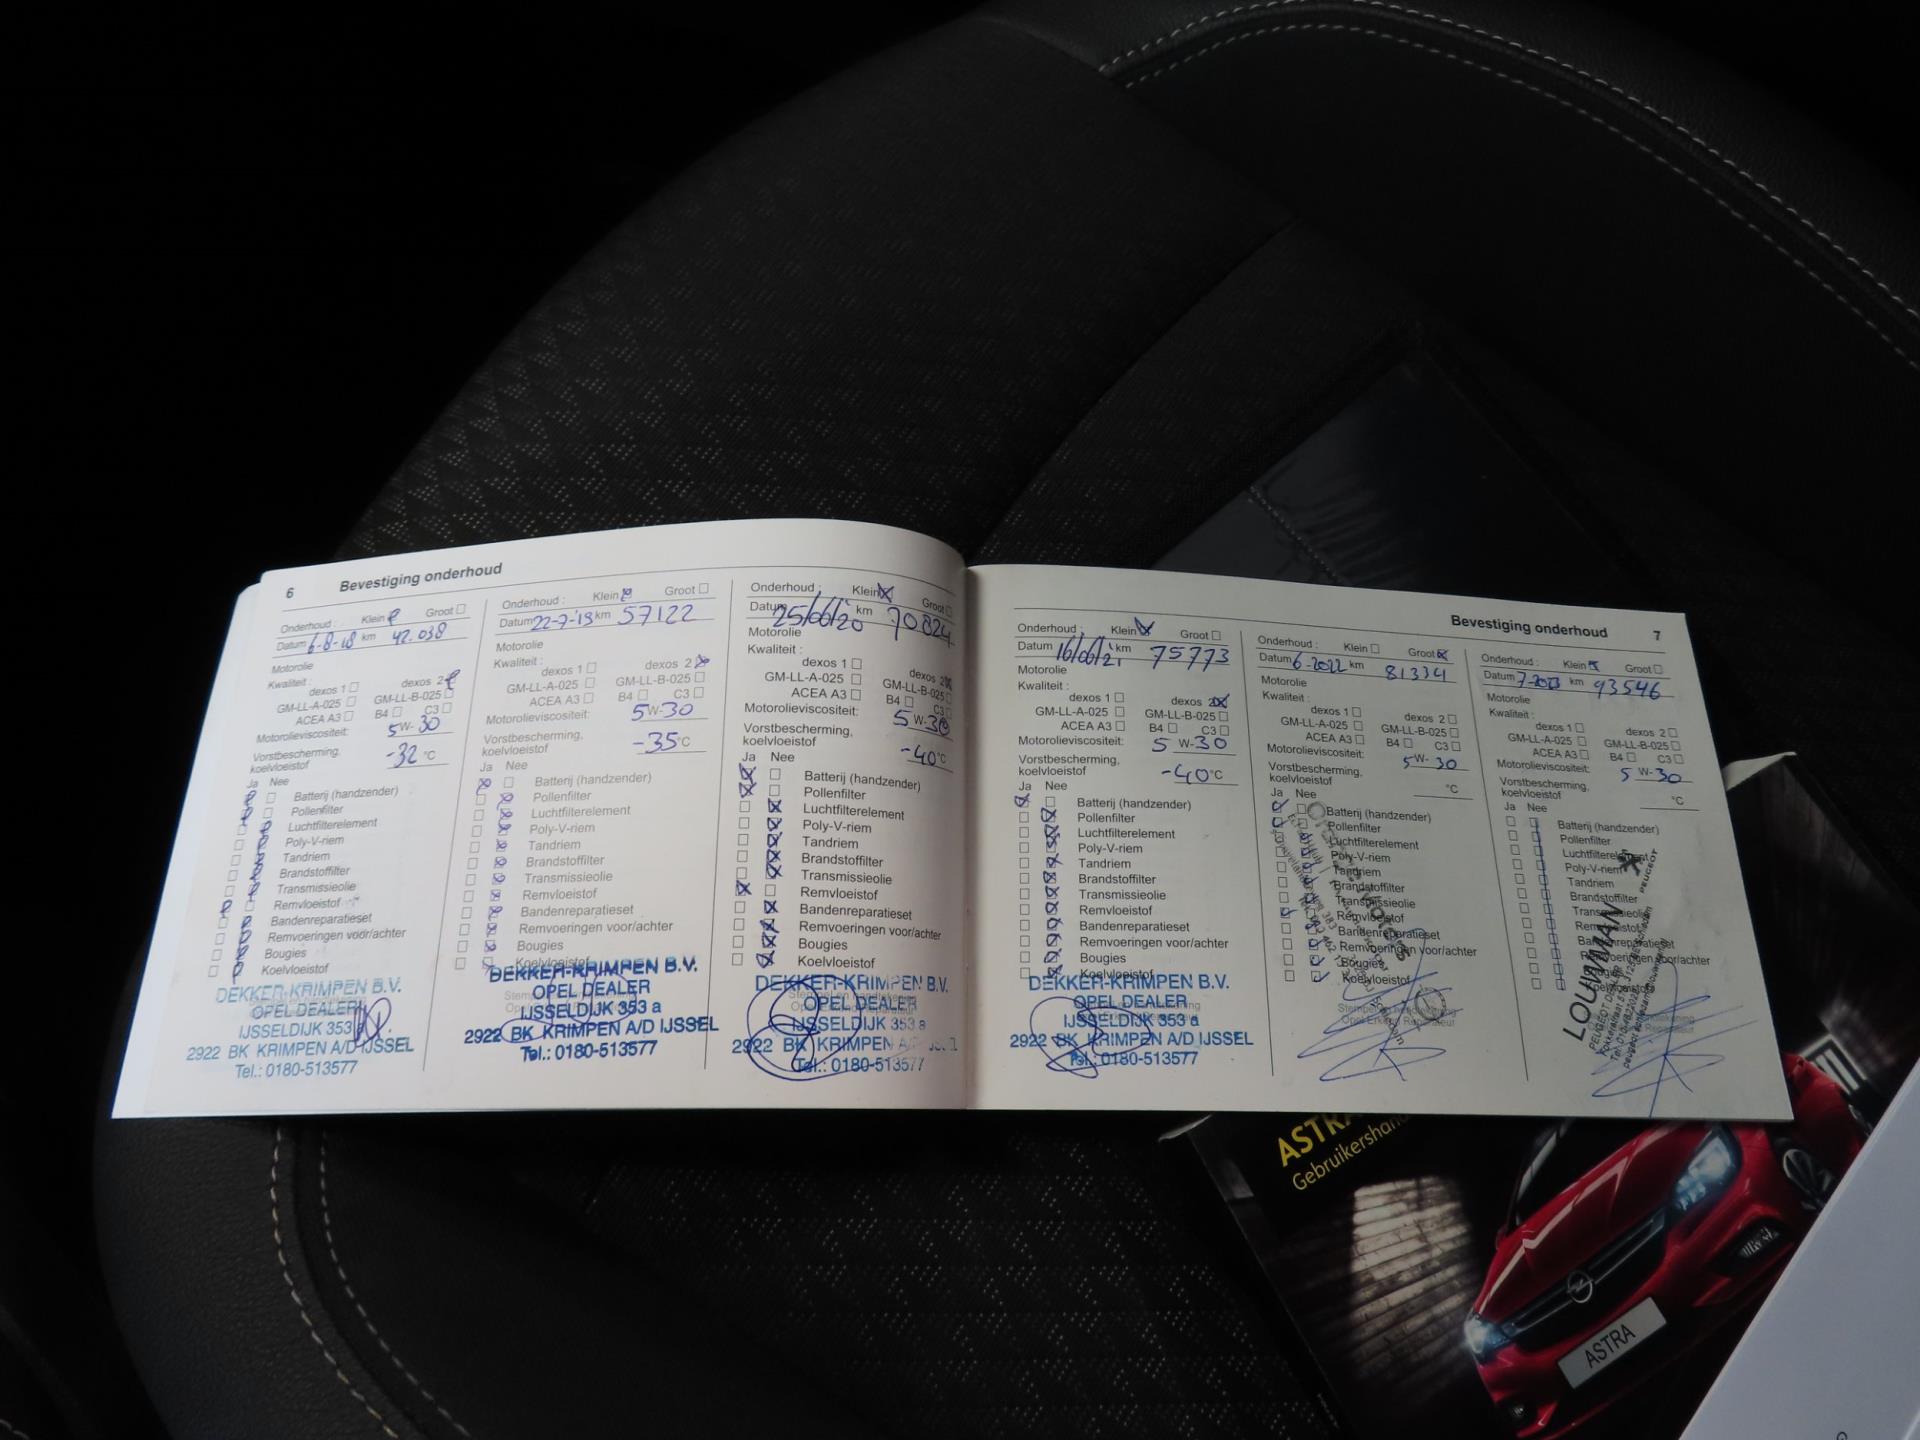 6 Bevestiging onderhoud
Onderhoud : Klein Groot
Datum 6-8-18 km 42.038
Motorolie
Kwaliteit :
dexos 1 dexos 2
GM-LL-A-025 GM-LL-B-025
ACEA A3 B4 C3
Motorolieviscositeit: 5 W-30
Vorstbescherming,
koelvloeistof -32 °C
Ja Nee
Batterij (handzender)
Pollenfilter
Luchtfilterelement
Poly-V-riem
Tandriem
Brandstoffilter
Transmissieolie
Remvloeistof
Bandenreparatieset
Remvoeringen voor/achter
Bougies
Koelvloeistof
DEKKER-KRIMPEN B.V.
OPEL DEALER
IJSSELDIJK 353 a
2922 BK KRIMPEN A/D IJSSEL
Tel.: 0180-513577
Onderhoud : Klein Groot
Datum 22-7-'19 km 57122
Motorolie
Kwaliteit :
dexos 1 dexos 2
GM-LL-A-025 GM-LL-B-025
ACEA A3 B4 C3
Motorolieviscositeit: 5 W-30
Vorstbescherming,
koelvloeistof -35 °C
Ja Nee
Batterij (handzender)
Pollenfilter
Luchtfilterelement
Poly-V-riem
Tandriem
Brandstoffilter
Transmissieolie
Remvloeistof
Bandenreparatieset
Remvoeringen voor/achter
Bougies
Koelvloeistof
DEKKER-KRIMPEN B.V.
OPEL DEALER
IJSSELDIJK 353 a
2922 BK KRIMPEN A/D IJSSEL
Tel.: 0180-513577
Onderhoud : Klein Groot
Datum 25/06/'20 km 70824
Motorolie
Kwaliteit :
dexos 1 dexos 2
GM-LL-A-025 GM-LL-B-025
ACEA A3 B4 C3
Motorolieviscositeit: 5 W-30
Vorstbescherming,
koelvloeistof -40 °C
Ja Nee
Batterij (handzender)
Pollenfilter
Luchtfilterelement
Poly-V-riem
Tandriem
Brandstoffilter
Transmissieolie
Remvloeistof
Bandenreparatieset
Remvoeringen voor/achter
Bougies
Koelvloeistof
DEKKER-KRIMPEN B.V.
OPEL DEALER
IJSSELDIJK 353 a
2922 BK KRIMPEN
Tel.: 0180-513577
Bevestiging onderhoud 7
Onderhoud : Klein Groot
Datum 16/06/21 km 75773
Motorolie
Kwaliteit :
dexos 1 dexos 2
GM-LL-A-025 GM-LL-B-025
ACEA A3 B4 C3
Motorolieviscositeit: 5 W-30
Vorstbescherming,
koelvloeistof -40 °C
Ja Nee
Batterij (handzender)
Pollenfilter
Luchtfilterelement
Poly-V-riem
Tandriem
Brandstoffilter
Transmissieolie
Remvloeistof
Bandenreparatieset
Remvoeringen voor/achter
Bougies
Koelvloeistof
DEKKER-KRIMPEN B.V.
OPEL DEALER
IJSSELDIJK 353 a
2922 BK KRIMPEN A/D IJSSEL
Tel.: 0180-513577
Onderhoud : Klein Groot
Datum 6-2022 km 81334
Motorolie
Kwaliteit :
dexos 1 dexos 2
GM-LL-A-025 GM-LL-B-025
ACEA A3 B4 C3
Motorolieviscositeit: 5 W-30
Vorstbescherming,
koelvloeistof °C
Ja Nee
Batterij (handzender)
Pollenfilter
Luchtfilterelement
Poly-V-riem
Tandriem
Brandstoffilter
Transmissieolie
Remvloeistof
Bandenreparatieset
Remvoeringen voor/achter
Bougies
Koelvloeistof
Onderhoud : Klein Groot
Datum 7-2023 km 93546
Motorolie
Kwaliteit :
dexos 1 dexos 2
GM-LL-A-025 GM-LL-B-025
ACEA A3 B4 C3
Motorolieviscositeit: 5 W-30
Vorstbescherming,
koelvloeistof °C
Ja Nee
Batterij (handzender)
Pollenfilter
Luchtfilterelement
Poly-V-riem
Tandriem
Brandstoffilter
Transmissieolie
Remvloeistof
Bandenreparatieset
Remvoeringen voor/achter
Bougies
Koelvloeistof
LOUWMAN
PEUGEOT
ASTRA
ASTRA